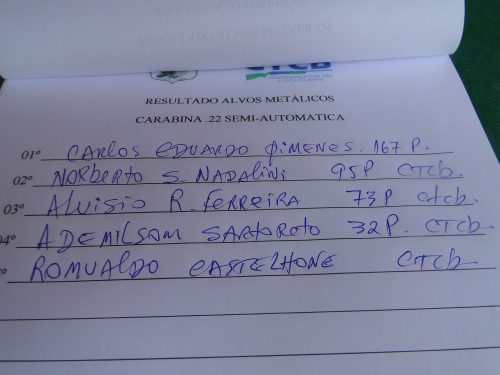 CTCB
RESULTADO ALVOS METÁLICOS
CARABINA .22 SEMI-AUTOMATICA
01º CARLOS EDUARDO PIMENES. 167 P.
02º NORBERTO S. NADALINI 95P CTCb
03º ALUISIO R. FERREIRA 73P CTCb.
04º ADEMILSOM SARTOROTO 32P. CTCb.
º ROMUALDO CASTELHONE CTCb